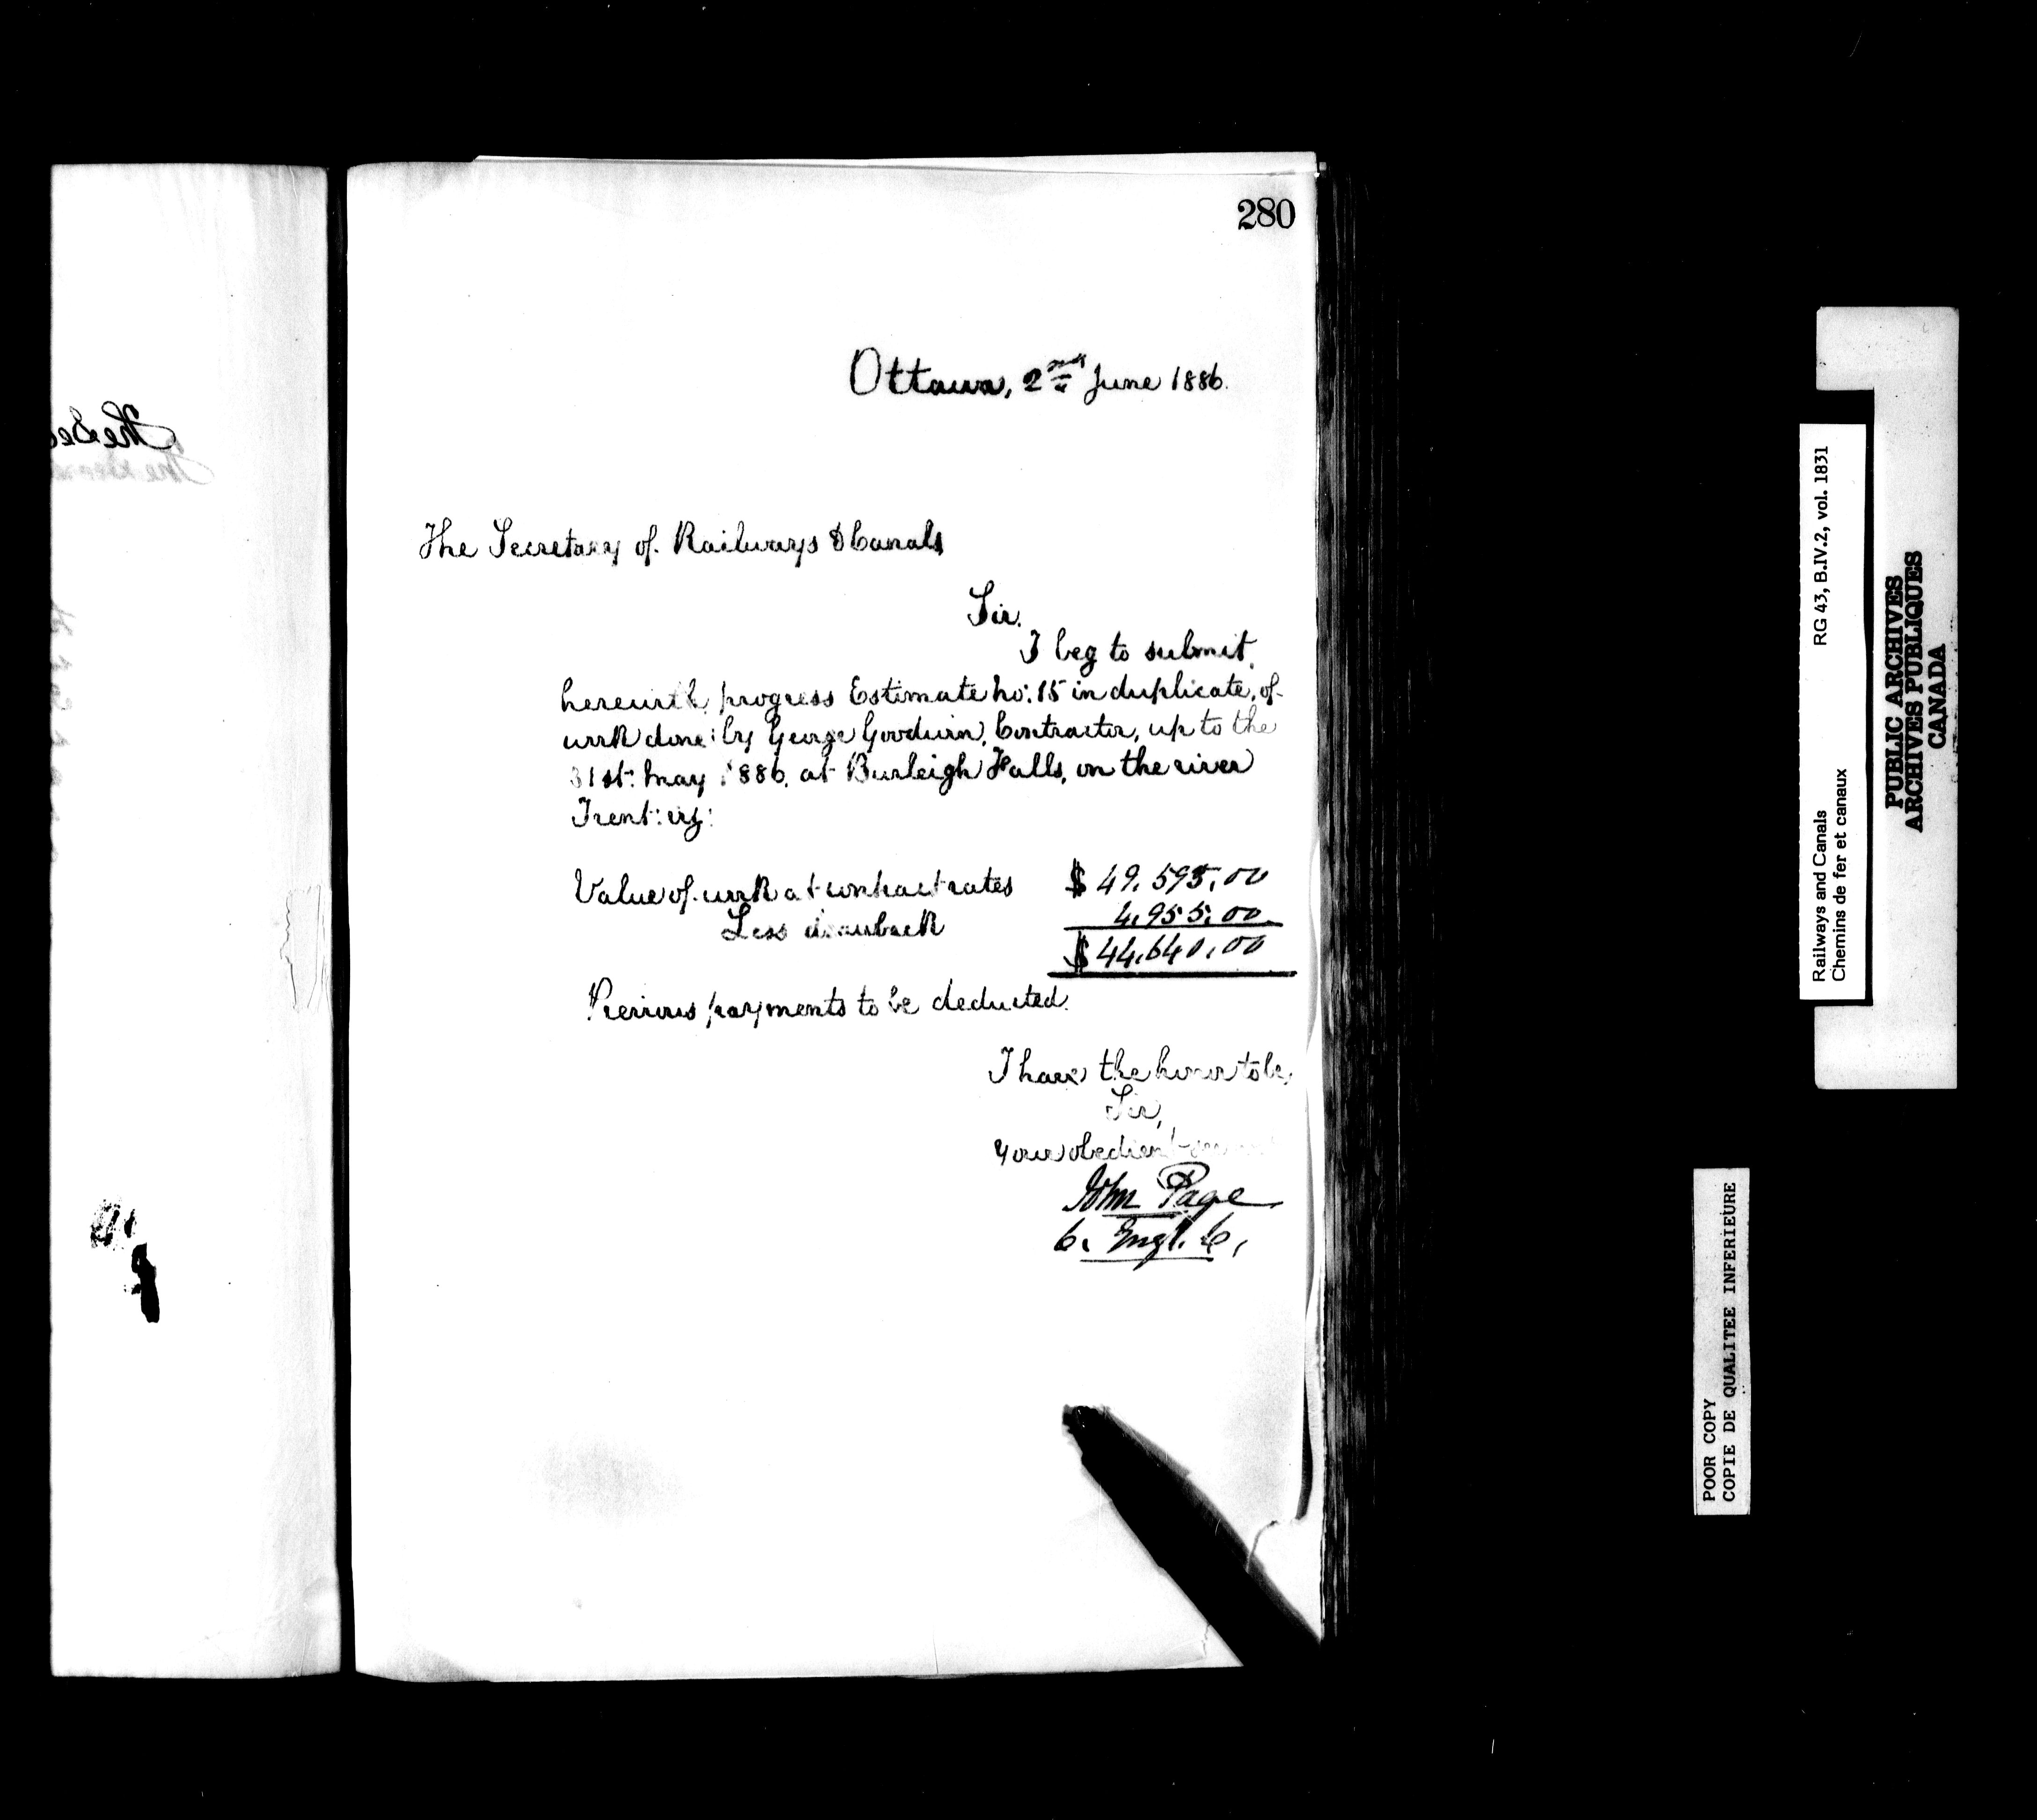 280
Ottawa, 2nd June 1886.
The Secretary of Railways & Canals
Sir.
I beg to submit
herewith progress Estimate no: 15 in duplicate, of
work done: by George Goodwin, Contractor, up to the
31st: May 1886, at Burleigh Falls, on the river
Trent: viz:
Value of work at contract rates $ 49.595.00
Less drawback 4.955.00
$ 44.640.00
Previous payments to be deducted.
I have the honor to be,
Sir,
Your obedient
John Page
C. Engr. C.
Railways and Canals RG 43, B.IV.2, vol. 1831
Chemins de fer et canaux
PUBLIC ARCHIVES
ARCHIVES PUBLIQUES
CANADA
POOR COPY
COPIE DE QUALITEE INFERIEURE